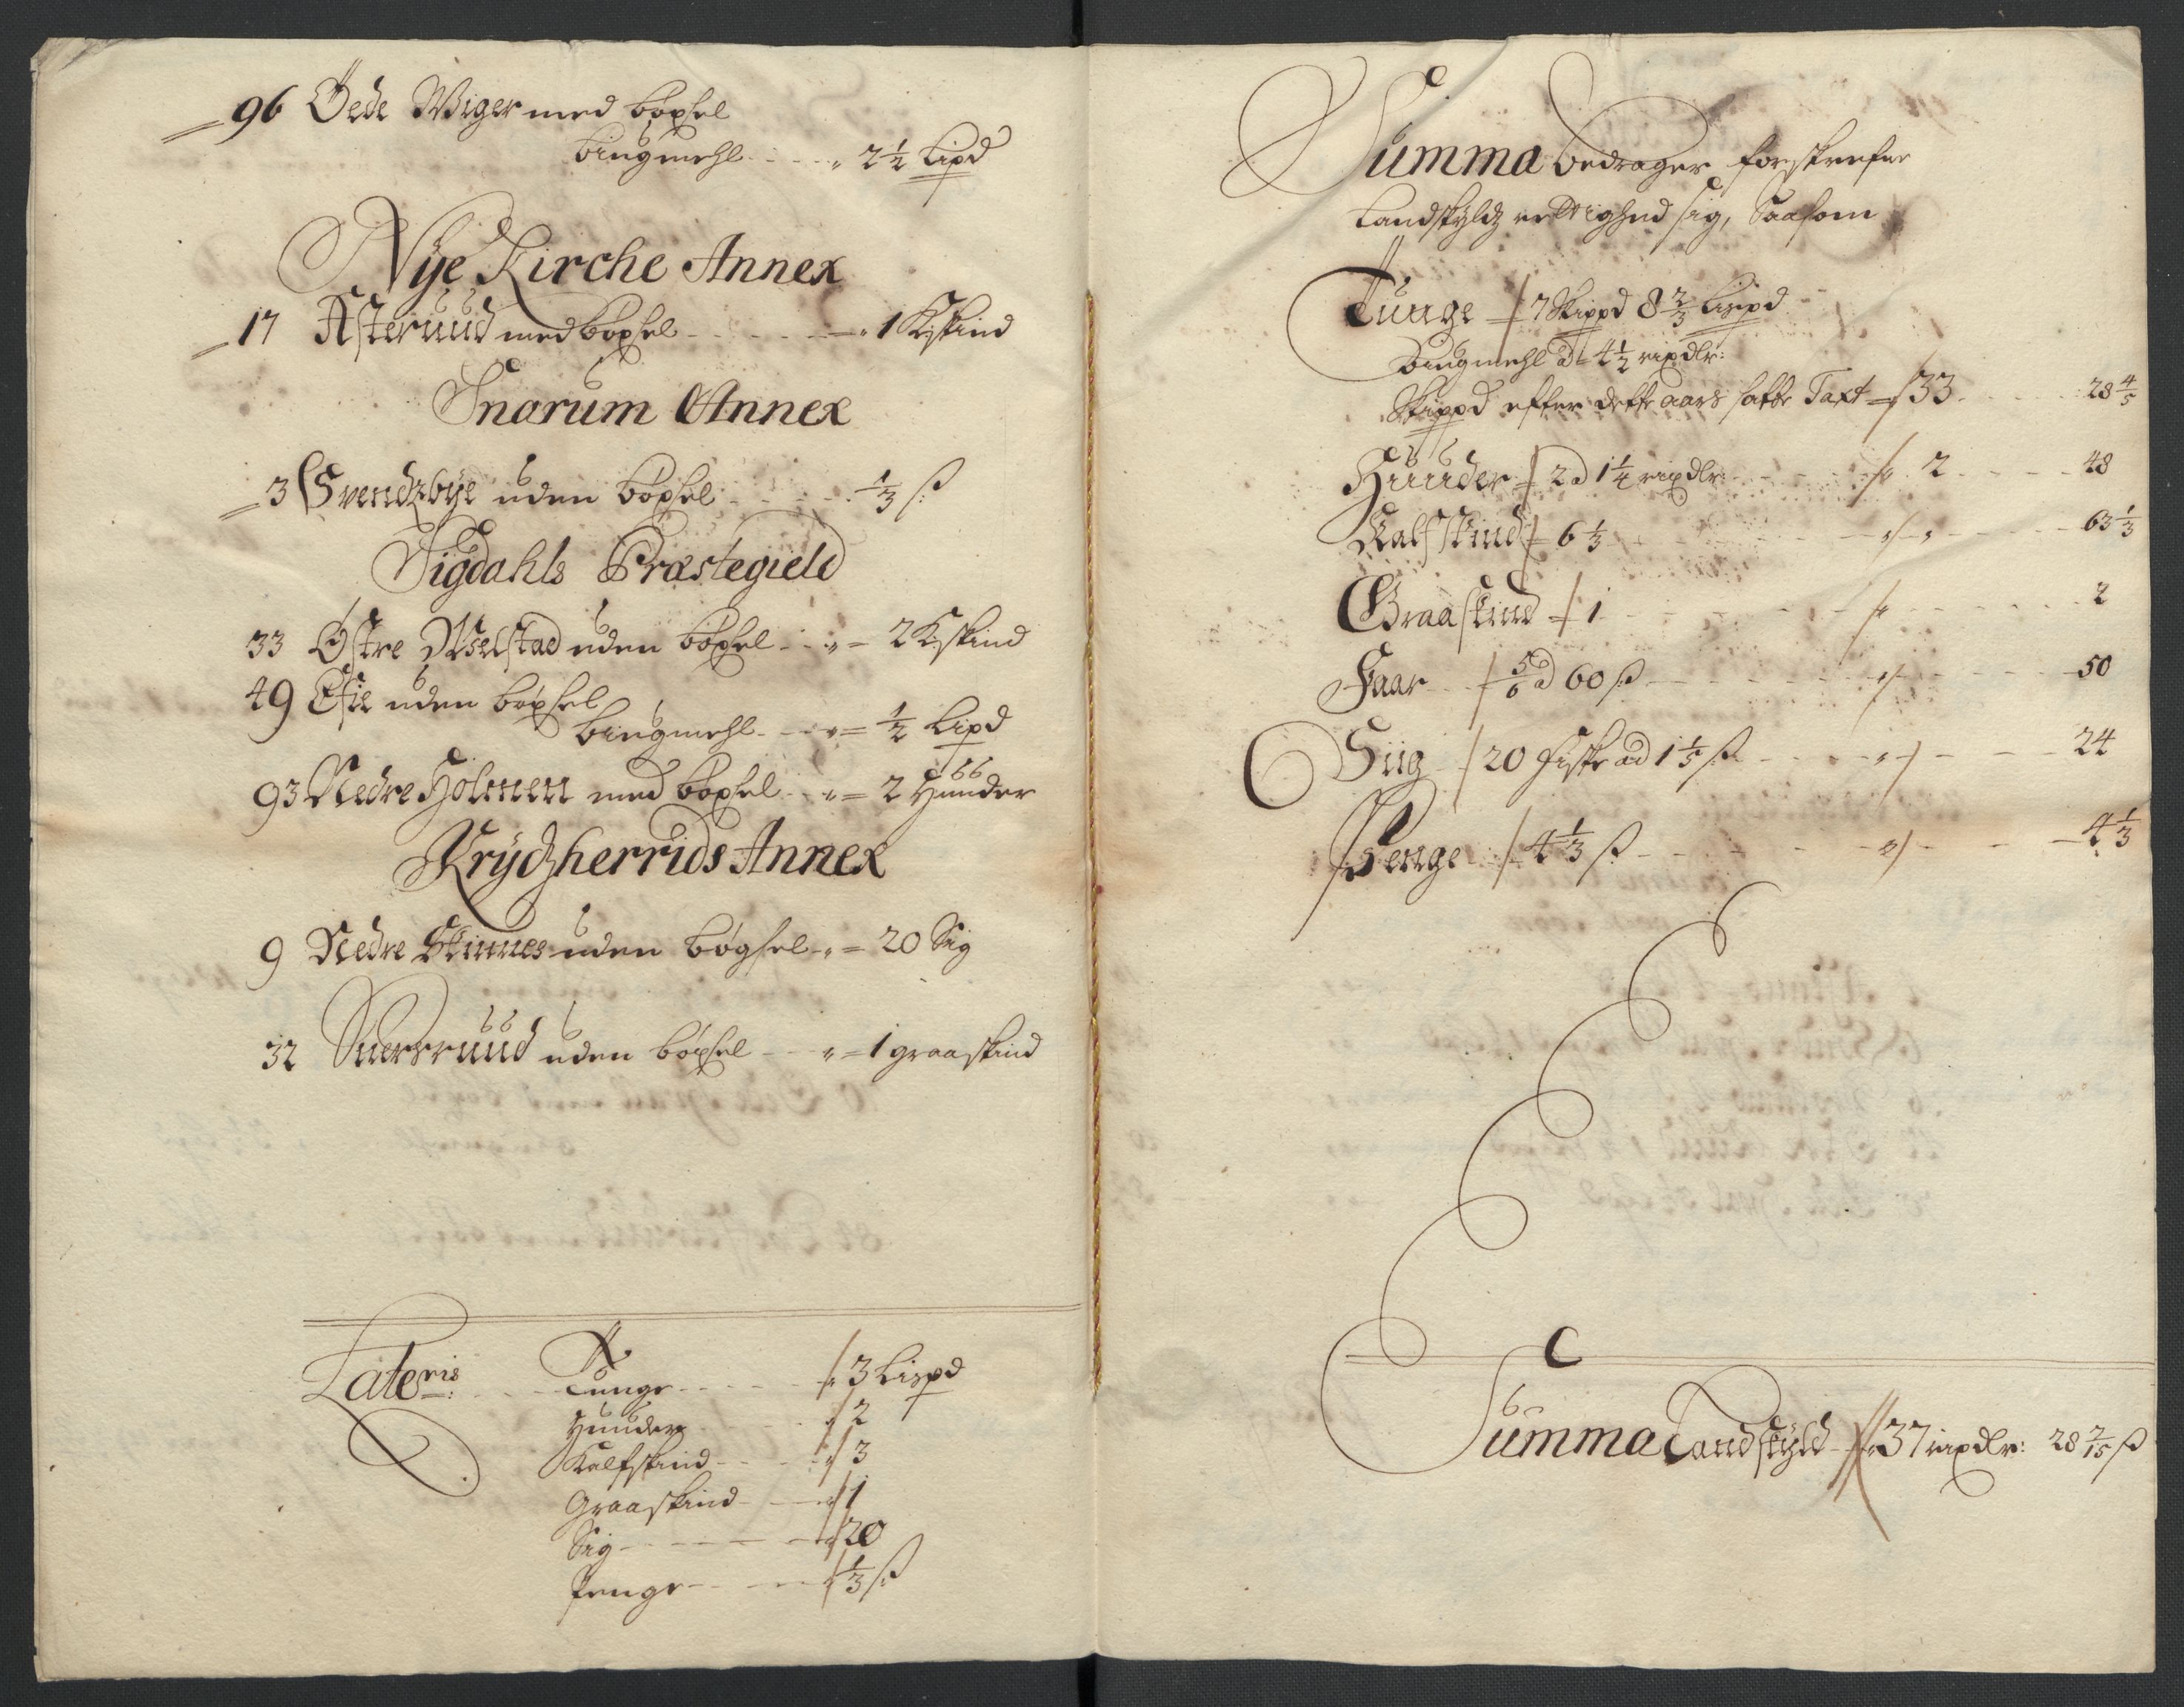 96 Øede Wiger med bøxsel
biugmehl - - - 2 1/2 Lispd
Nÿe Kirche Annex
17 Asteruud med bøxsel - - - - 1 K:skind
Snarum Annex
3 Svendzbÿe uden bøxsel - - - 1/3 ß
Sigdahls Præstegield
33 Østre Welstad uden bøxsel - - = 2 K:skind
49 Eie uden bøxsel
biugmehl - - = 1/2 Lispd
93 Nedre Holmen med bøxsel - = 2 Huuder
Krÿdzherrids Annex
9 Nedre Skinnes uden bøgsel - = 20 Sig
32 Snerruud uden bøxsel - - = 1 graaskind
Lateris: - - Tunge - - - - 3 Lispd
Huuder - - - 2
Kalfskind - - - 3
Graaskind - - - 1
Sig - - - - 20
Penge - - - 1/3 ß
Summa bedrager forskrefne
Landskÿldz rettighed sig, Saasom
Tunge - 7 Skippd 8 2/3 Lispd
biugmehl a 4 1/2 rixdlr:
Skippd efter dette aars satte Taxt - 33 - - - 28 4/5
Huuder - 2 a 1 1/4 rixdlr: - - - 2 - - - 48
Kalfskind - 6 1/3 - - - 63 1/3
Graaskind - 1 - - - 2
Faar - 5/6 a 60 ß - - - 50
Siig - 20 Fiske ad 1 1/5 ß - - - 24
Penge - 4 1/3 ß - - - 4 1/3
Summa Landskÿld - 37 rixdlr: 28 7/15 ß